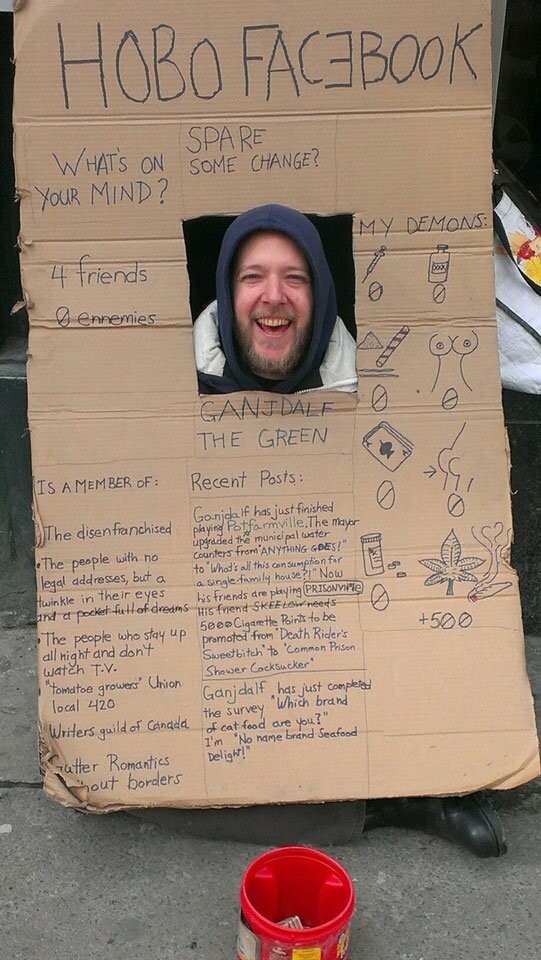 HOBO FACEBOOK
WHAT'S ON
YOUR MIND?
SPARE
SOME CHANGE?
4 friends
0 ennemies
MY DEMONS:
0
0
0
0
0
0
0
+500
GANJDALF
THE GREEN
IS A MEMBER OF:
The disenfranchised
• The people with no
legal addresses, but a
twinkle in their eyes
and a pocket full of dreams
• The people who stay up
all night and don't
watch T.V.
• "tomatoe growers" Union
local 420
Writers guild of Canada
Gutter Romantics
without borders
Recent Posts:
Ganjdalf has just finished
playing Potfarmville. The mayor
upgraded the municipal water
counters from "ANYTHING GOES!"
to "What's all this consumption for
a single-family house?!" Now
his friends are playing PRISONVILLE
His friend SKEELOW needs
5000 Cigarette Points to be
promoted from "Death Rider's
Sweetbitch" to "Common Prison
Shower Cocksucker"
Ganjdalf has just completed
the survey "Which brand
of cat food are you?"
I'm "No name brand Seafood
Delight!"